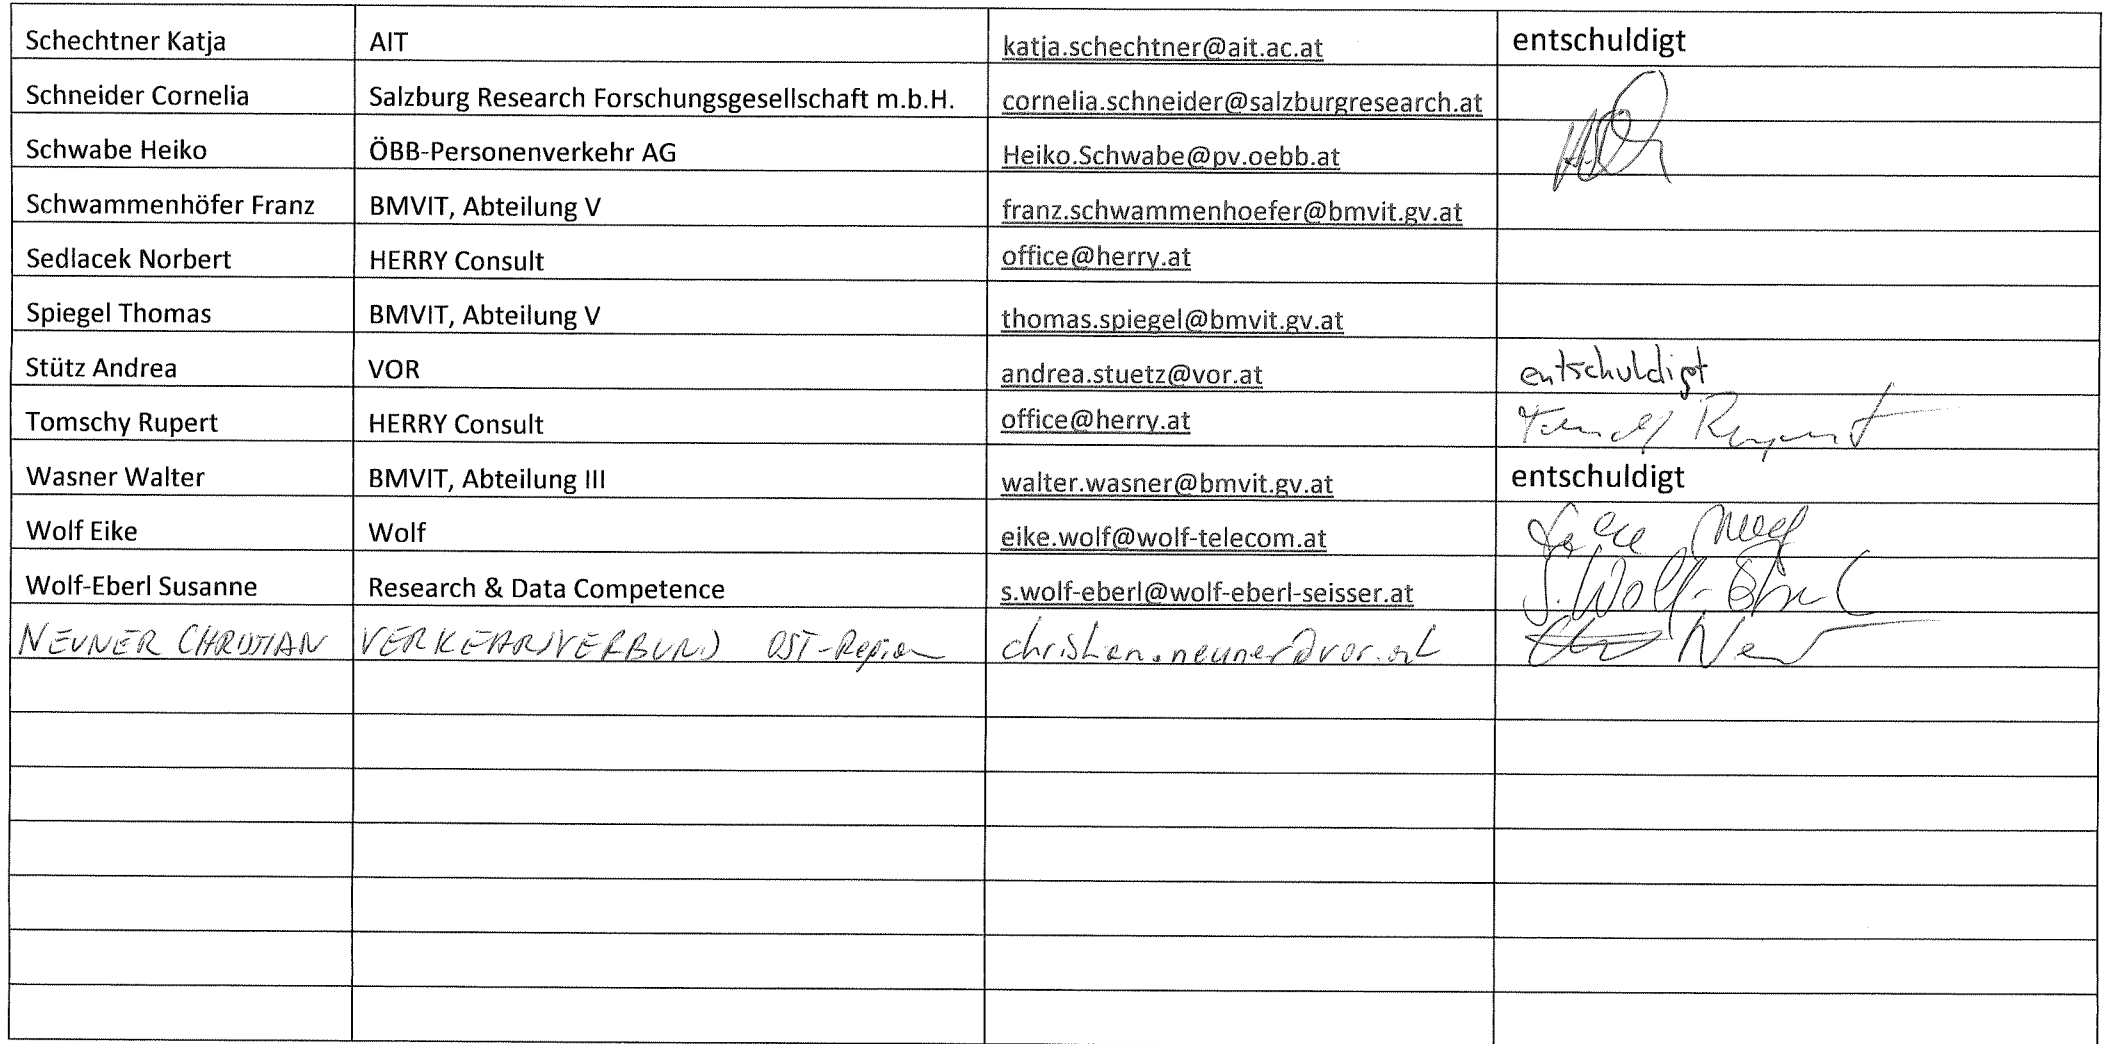 Schechtner Katja AIT katja.schechtner@ait.ac.at entschuldigt
Schneider Cornelia Salzburg Research Forschungsgesellschaft m.b.H. cornelia.schneider@salzburgresearch.at
Schwabe Heiko ÖBB-Personenverkehr AG Heiko.Schwabe@pv.oebb.at
Schwammenhöfer Franz BMVIT, Abteilung V franz.schwammenhoefer@bmvit.gv.at
Sedlacek Norbert HERRY Consult office@herry.at
Spiegel Thomas BMVIT, Abteilung V thomas.spiegel@bmvit.gv.at
Stütz Andrea VOR andrea.stuetz@vor.at entschuldigt
Tomschy Rupert HERRY Consult office@herry.at
Wasner Walter BMVIT, Abteilung III walter.wasner@bmvit.gv.at entschuldigt
Wolf Eike Wolf eike.wolf@wolf-telecom.at
Wolf-Eberl Susanne Research & Data Competence s.wolf-eberl@wolf-eberl-seisser.at S. Wolf-Eberl
NEUNER CHRISTIAN VERKEHRSVERBUND OST-Region christian.neuner@vor.at